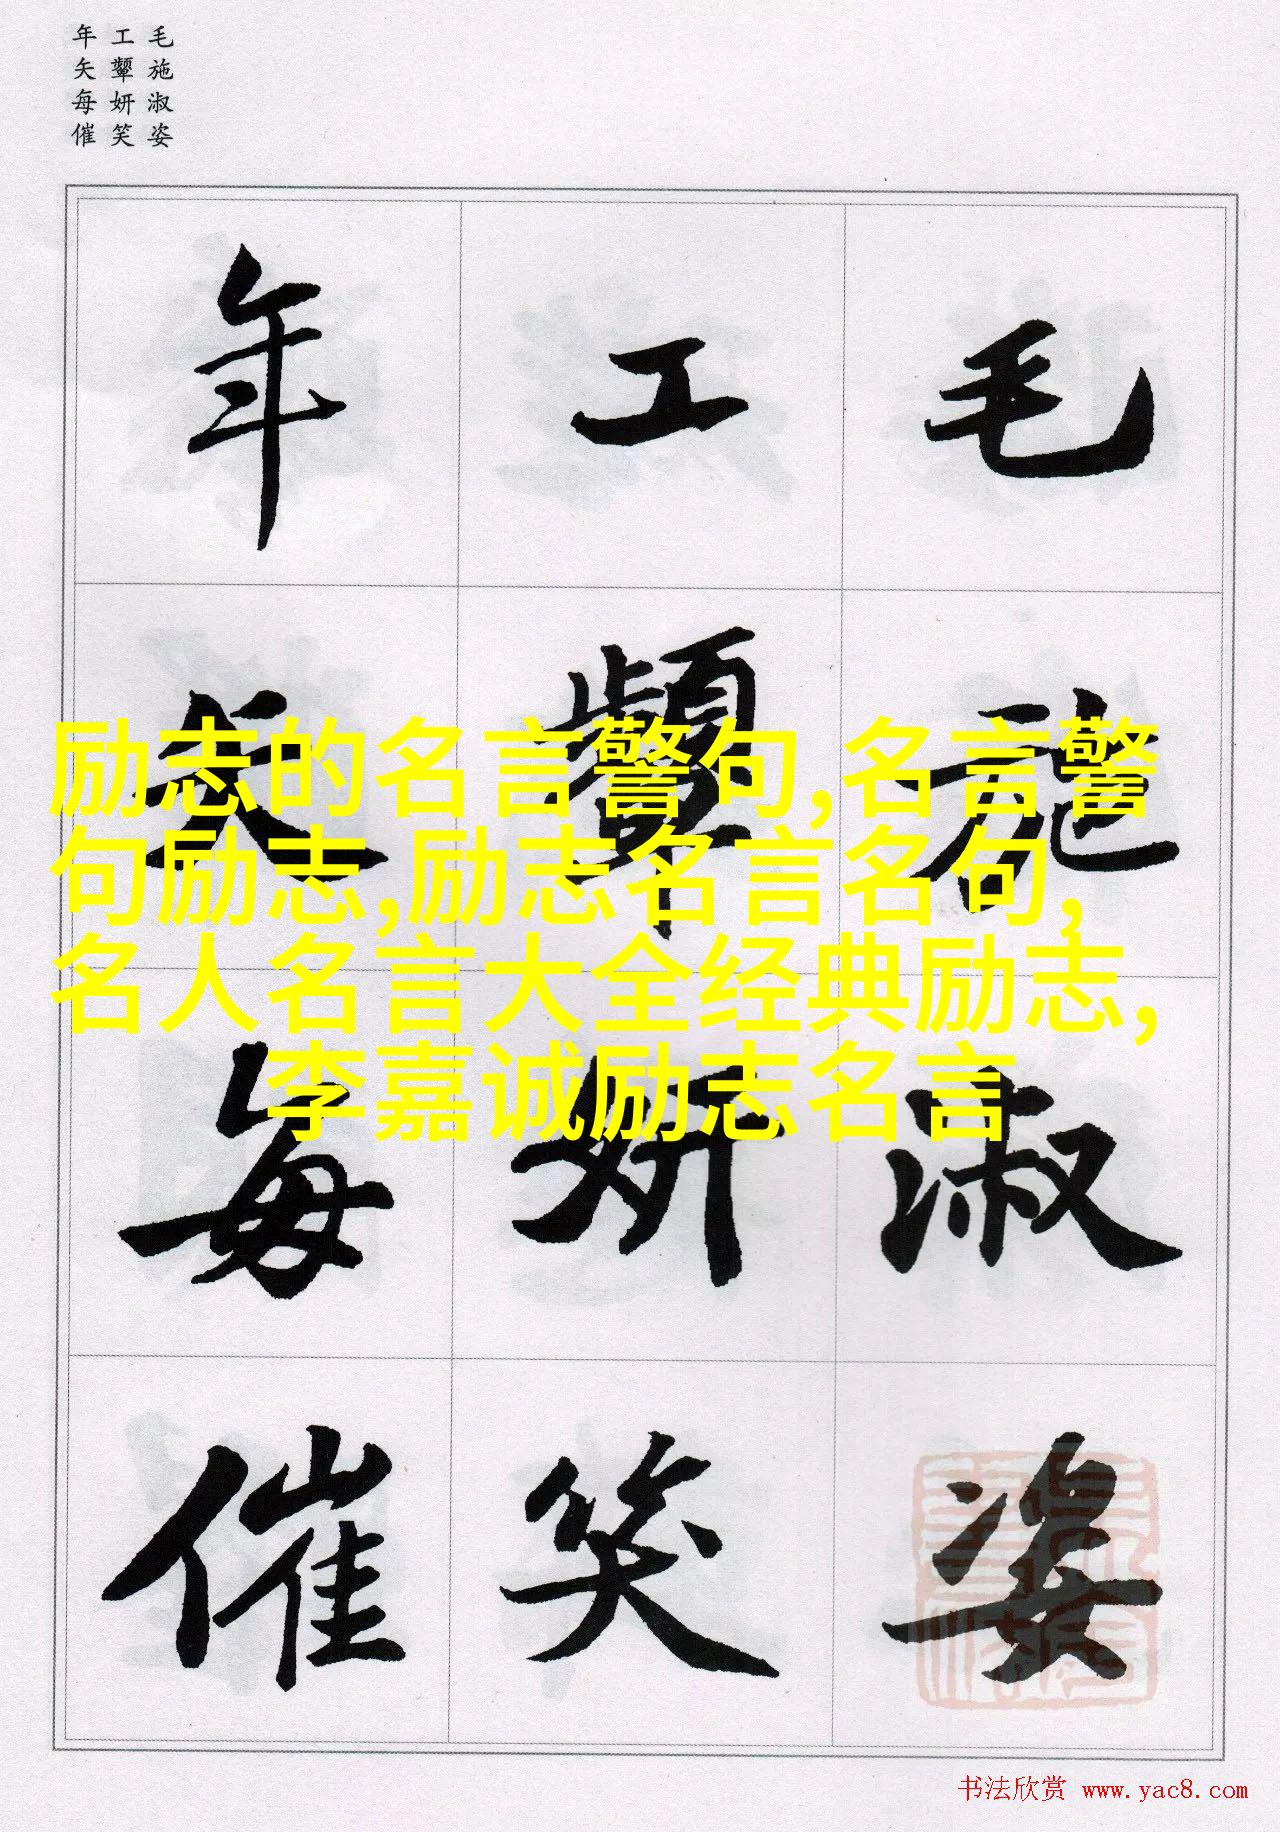 毛施淑姿
工颦妍笑
年矢每催
毛施淑姿
工颦妍笑
年矢每催
励志的名言警句,名言警
句励志,励志名言名句,
名人名言大全经典励志,
李嘉诚励志名言
书法欣赏 www.yac8.com